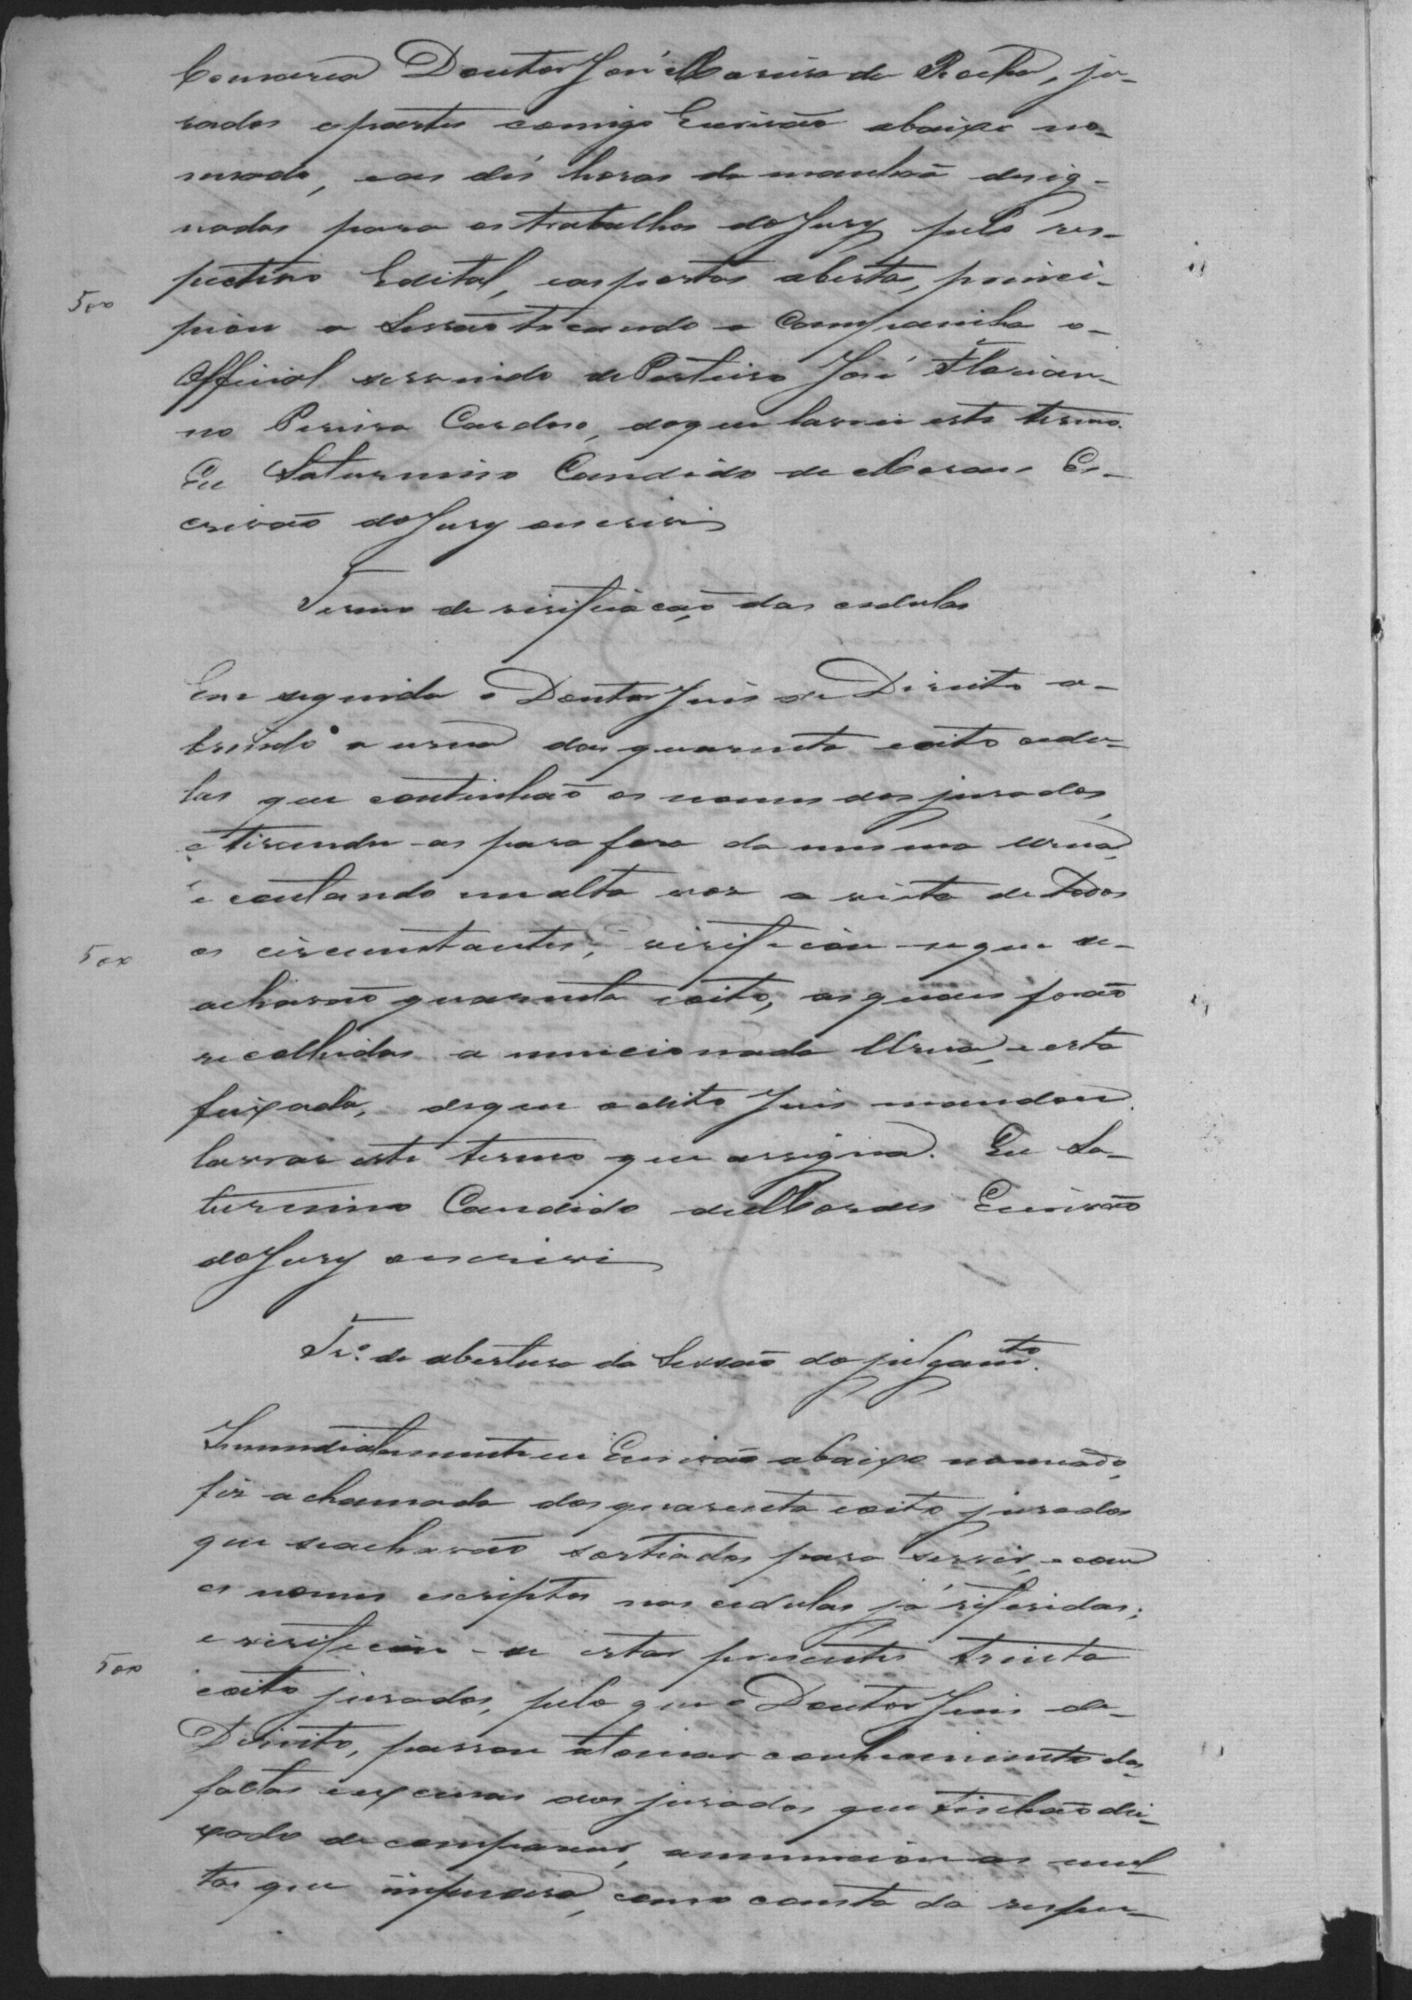 Comarca Doutor José Mariùa da Rocha, ju-
rados e partes comigo Escrivão abaixo no-
meado, e as dés horas da manhaã desig-
nadas para os trabalhos do Jury pelo res-
pectivo Edital, e as portas abertas, princi-
500
piou a Sessão tocando a Campainha o
Official servindo de Porteiro José Florian-
no Pereira Cardoso, do que lavrei este termo.
Eu Saturnino Candido de Moraes Es-
crivão do Jury o escrivi
Termo de virificacação das cedulas
Em seguida o Doutor Juis de Direito a-
brindo a urna das quarenta e oito cedu-
las que continhão os nomes dos jurados,
e tirando-as para fora da mesma Urna,
e contando em alta voz a vista de todos
500
os circunstantes, virificou-se que se
acharão quarenta e oito, as quais forão
recolhidas a mencionada Urna, e esta
feixada, do que o dito Juis mandou
lavrar este termo que assigna. Eu Sa-
turnino Candido de Moraes Escrivão
do Jury o escrivi
Tr.º de abertura da Sessão do julgamto.
Immediatamente eu Escrivão abaixo nomeado,
fiz a chamada dos quarenta e oito jurados
que se acharão sortiados para servir, e com
os nomes escriptos nas cedulas já referidas;
e virificou-se estar presentes trinta
500
e oito jurados, pelo que o Doutor Juis de
Direito, passou a tomar conhecimento das
faltas e excusas dos jurados que tinhão dei-
xado de comparecer, annunciou as mul-
tas que impusera, como consta da respec-